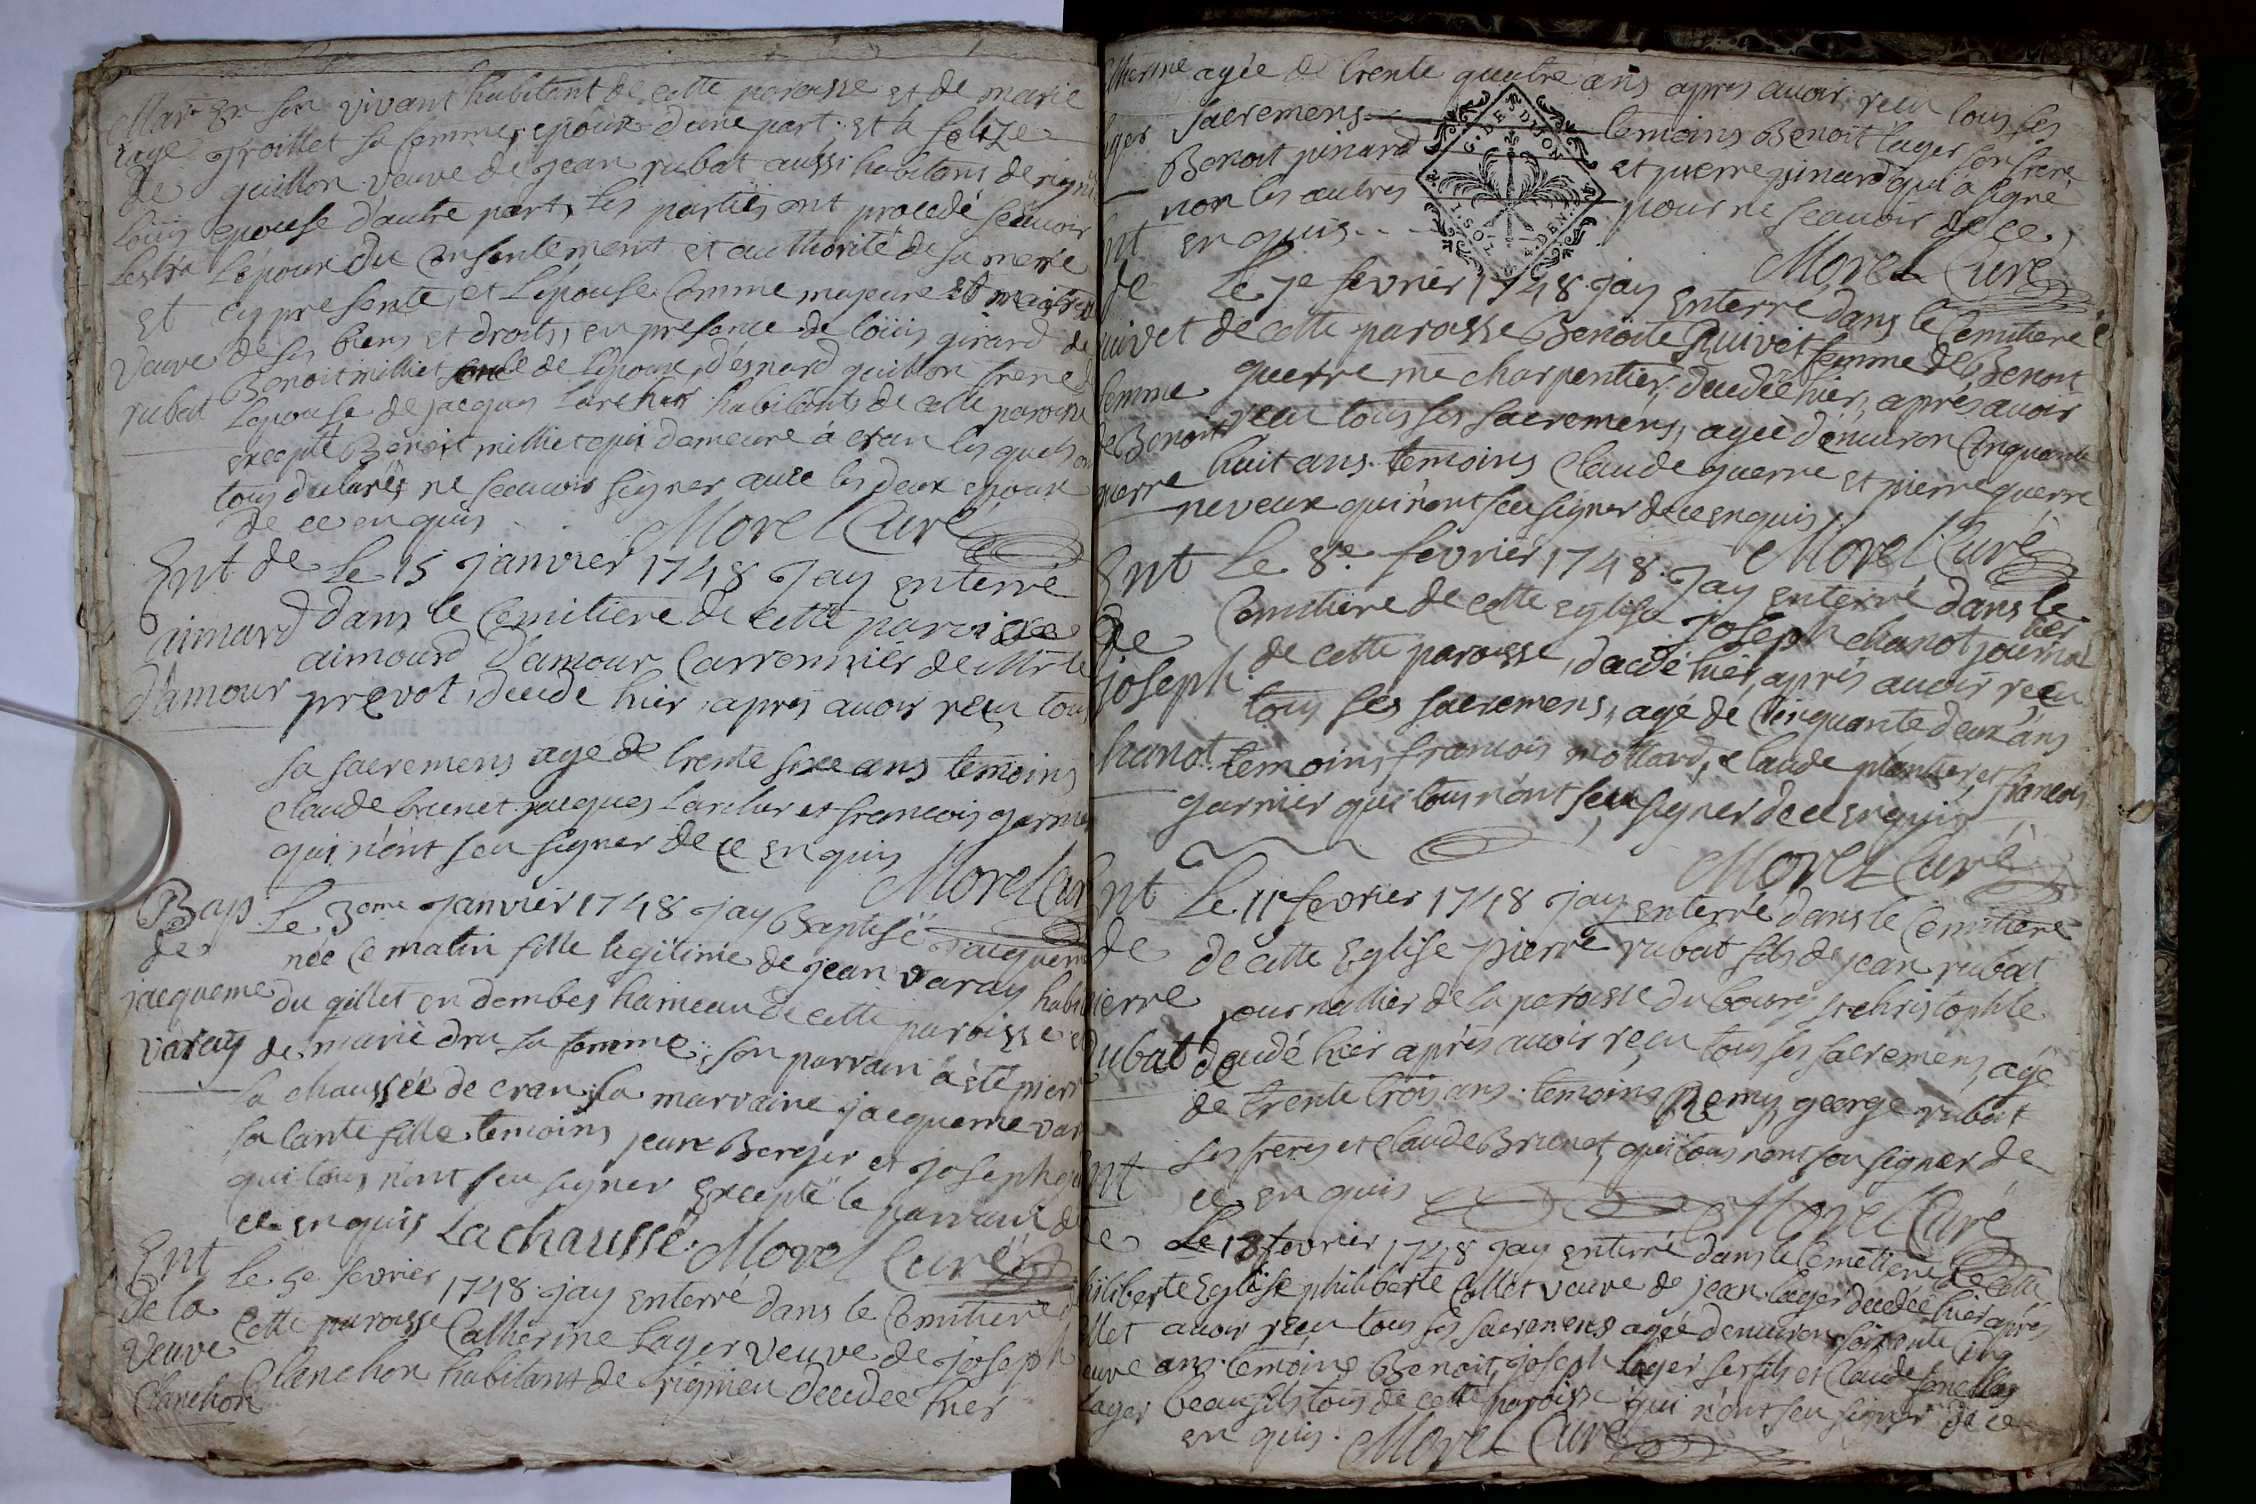 en son vivant habitant de cette paroisse et de marie
Mar
iage
froillet sa femme, epoux d'une part. et
de
guillon veuve de jean rubat aussi habitans de
louis
epouse d'autre part, les parties ont procedé scavoir
L'epoux du Consentement et authorité de sa mere
et
cy presente, et L'épouse Comme majeure et
veuve
de ses biens et droits, en presence de loüis girard de
rubat
Benoit milliet de L'epoux, guillon frere
L'epouse de jacques Larcher habitants de cette paroisse
excepté Benoit milliet qui demeure à cran les quels
tous ne scavoir signer avec les deux epoux
de ce enquis Morel Curé
Ent de
Le 15 janvier 1748 jay enterré
aimard
dans le Cemitiere de cette paroisse
d'amour
aimard d'amour, de Mr le
prevot, decedé hier, apres avoir reçu tous
sa sacremens agé de trente six ans temoins
claude brunet jacques Larcher et francois
qui n'ont sçu signer de ce enquis
Morel
Bap
Le 30me janvier 1748 jay Baptisé jacqueme
de
née Ce matin fille legitime de jean varay
jacqueme
du gillet en dombes hameau de cette paroisse et
varay
de marie dru sa femme; son parrain à été pierre
la chaussée de cran, la marraine jacqueme
sa tante fille temoins jean Berger et joseph
qui tous n'ont sçu signer Excepté le parrain de
ce enquis Lachaussé. Morel Curé
Ent
Le 5e fevrier 1748. jay enterré dans le Cemitiere
de la
cette paroisse Catherine Lager veuve de joseph
veuve
Clanchon habitant de rignieu decedee hier
Clanchon
agée de trente quatre ans apres avoir reçu tous ses
sacremens temoins Benoit lager son frere
Benoit pinard et pierre pinard qui a signé
non les autres pour ne scavoir de ce
enquis
Morel Curé
G. DE DIJON
Le 7e fevrier 1748. jay enterré dans le Cemitiere
de
de cette paroisse Benoite Quivet femme de Benoit
femme
guerre me charpentier, decedée hier, apres avoir
de Benoit
reçu tous ses sacremens, agée d'environ Cinquante
guerre
huit ans. temoins Claude guerre et pierre guerre
neveux qui n'ont sçu signer de ce enquis
Morel Curé
Ent
Le 8e fevrier 1748. jay enterré dans le
de
Cemitiere de cette eglise joseph chanot journalier
joseph
de cette paroisse, decedé hier, apres avoir reçu
tous ses sacremens, agé de Cinquante deux ans
hanot
temoins, francois mottard, claude plantier, et francois
garnier qui tous n'ont sçu signer de ce enquis
Morel Curé
Ent
Le 11e fevrier 1748 jay enterré dans le Cemitiere
de
de cette Eglise pierre rubat fils de jean rubat
ierre
journallier de la paroisse du bourg st christophle
rubat
decedé hier apres avoir reçu tous ses sacremens, agé
de trente trois ans. temoins Remy, george rubat
ses freres et claude Brunet, qui tous n'ont sçu signer de
ce enquis Morel Curé
Ent
Le 18 fevrier 1748 jay enterré dans le Cemetiere de cette
hiliberte
Eglise philiberte Collet veuve de jean lager decedée hier apres
llet
avoir reçu tous ses sacremens agée d'environ soixante Cinq
veuve
ans. temoins Benoit, joseph lager ses fils et claude
Lager
beau fils tous de cette paroisse qui n'ont sçu signer de ce
enquis. Morel Curé